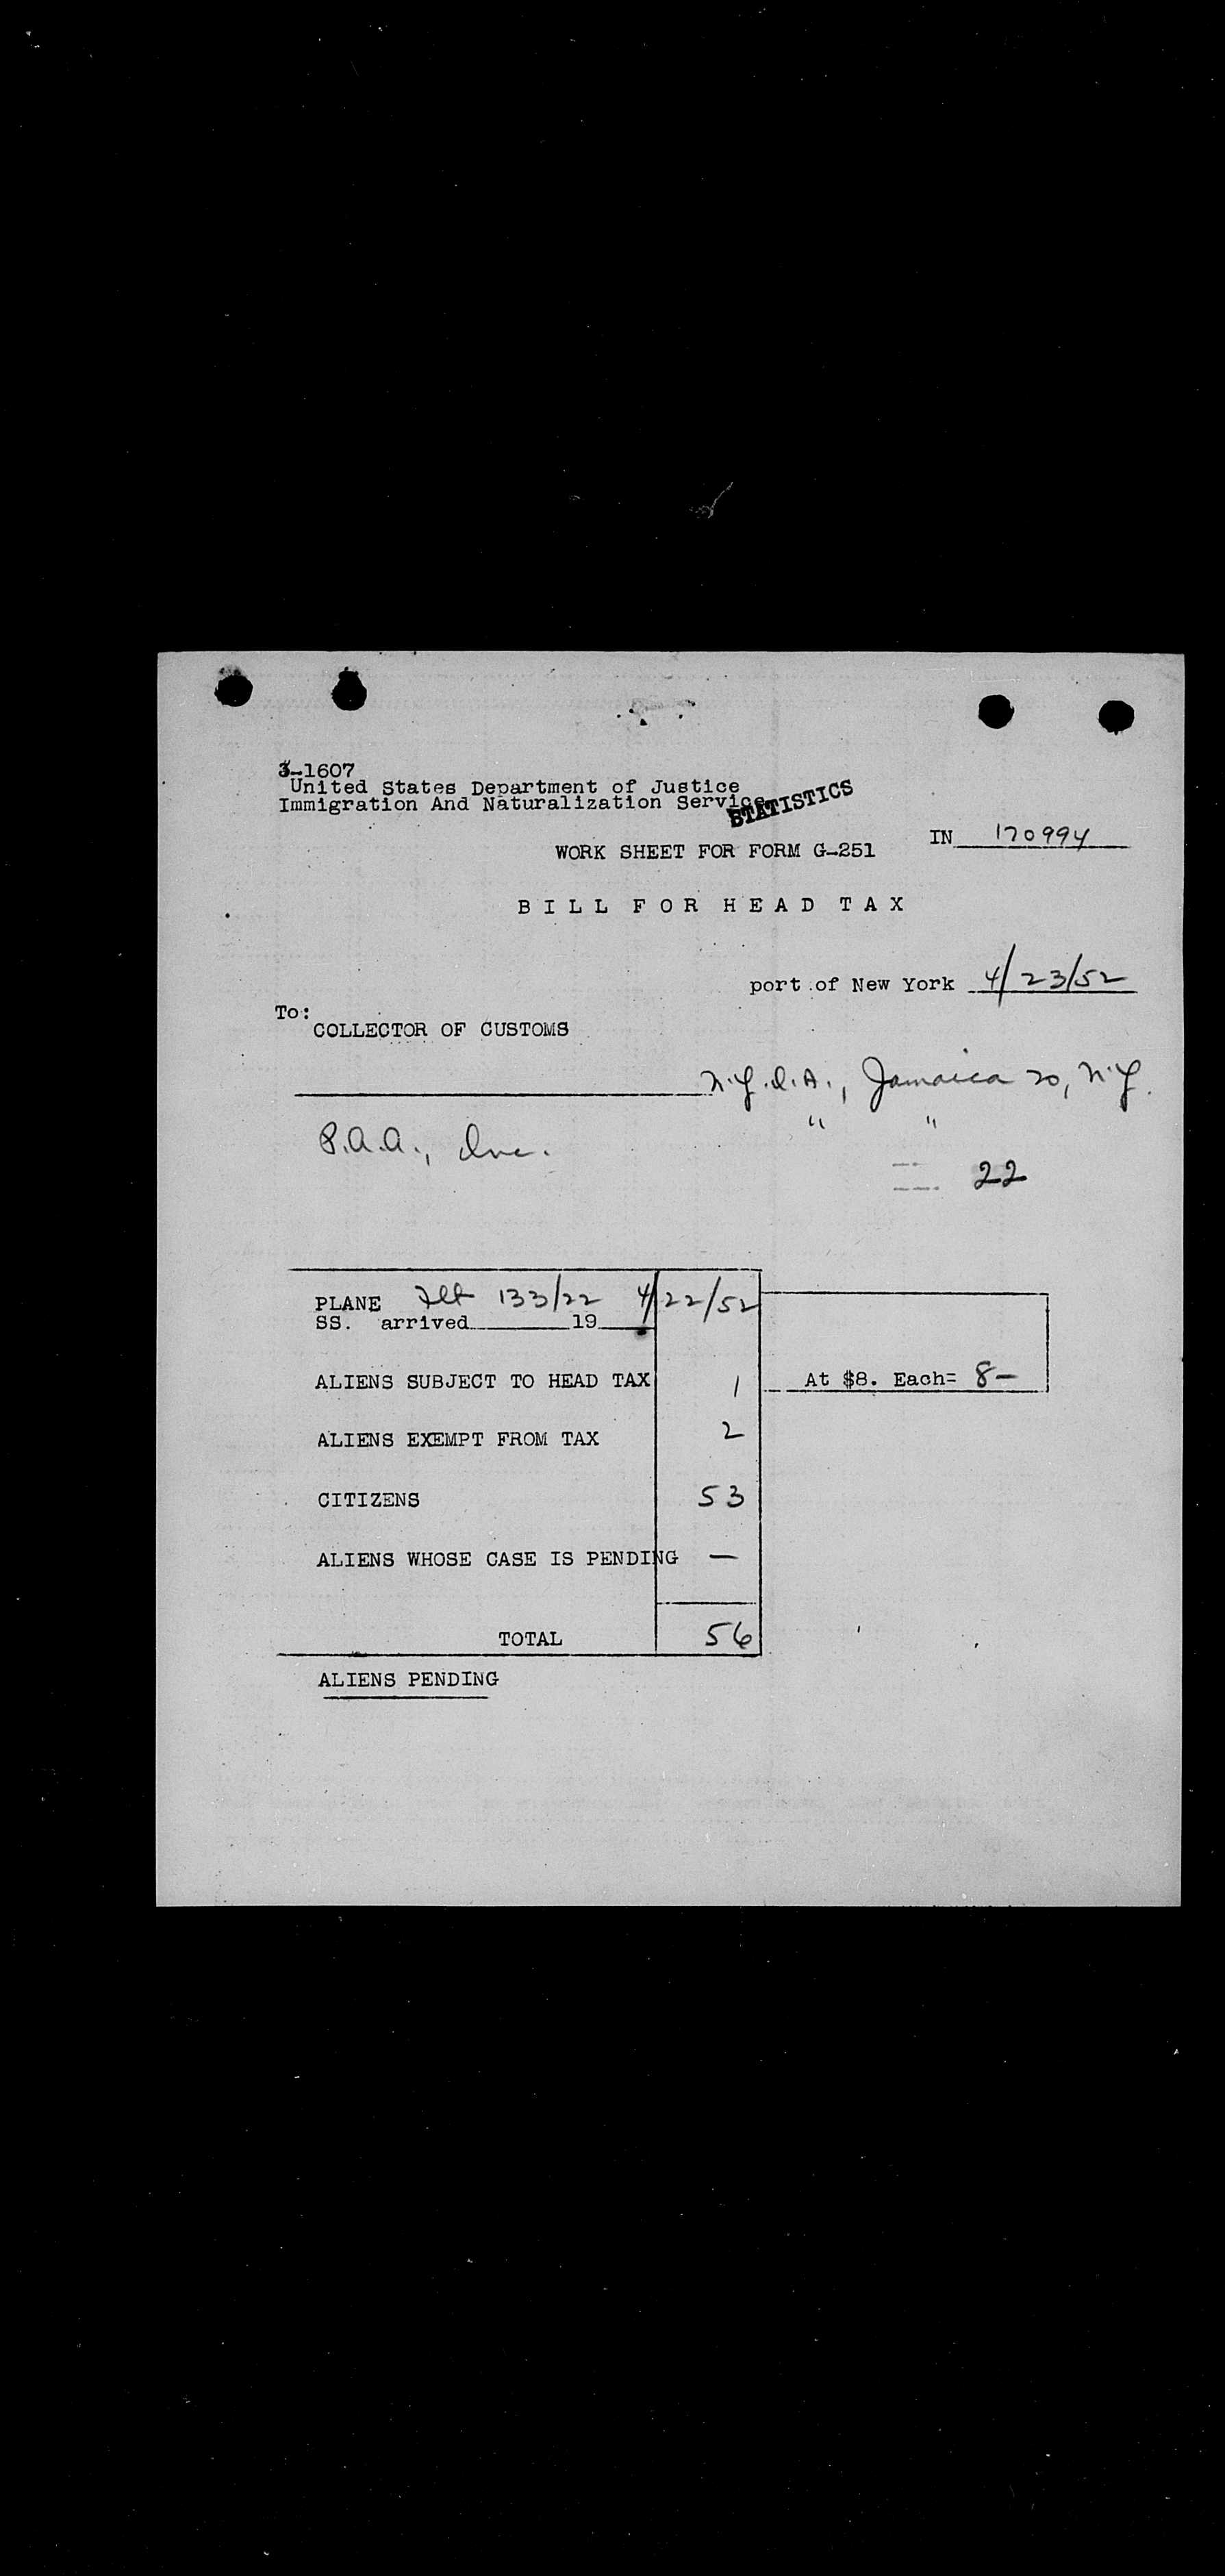 3-1607
United States Department of Justice
Immigration And Naturalization Service
STATISTICS
IN 170994
WORK SHEET FOR FORM G-251
BILL FOR HEAD TAX
port of New York 4/23/52
To:
COLLECTOR OF CUSTOMS
N.Y.I.A., Jamaica 20, N.Y.
P.A.A., Inc. " "
22
PLANE Flt 133/22 4/22/52
SS. arrived 19
ALIENS SUBJECT TO HEAD TAX 1 At $8. Each= 8-
ALIENS EXEMPT FROM TAX 2
CITIZENS 53
ALIENS WHOSE CASE IS PENDING —
TOTAL 56
ALIENS PENDING